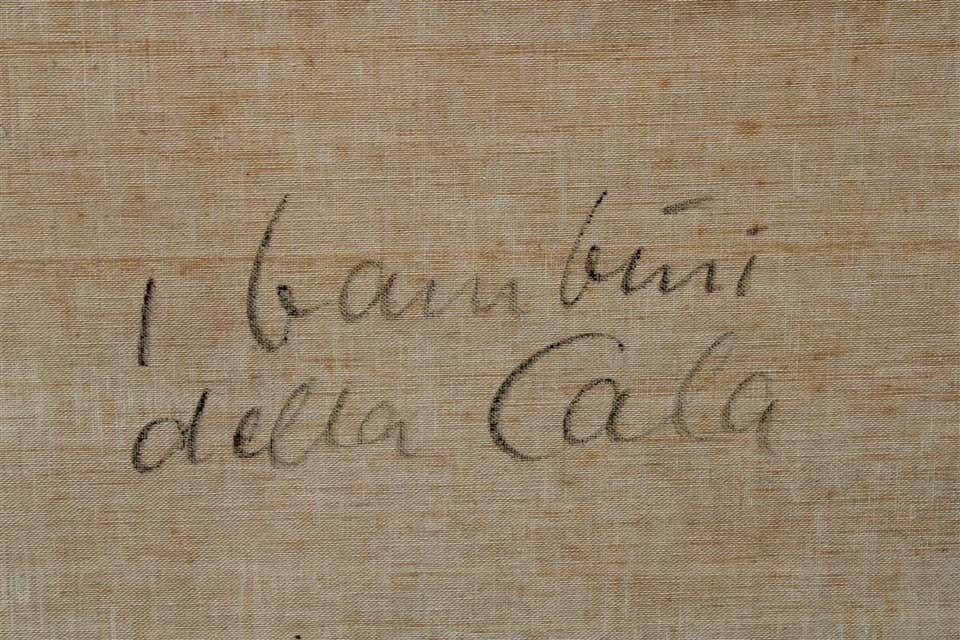 I bambini
della Cala